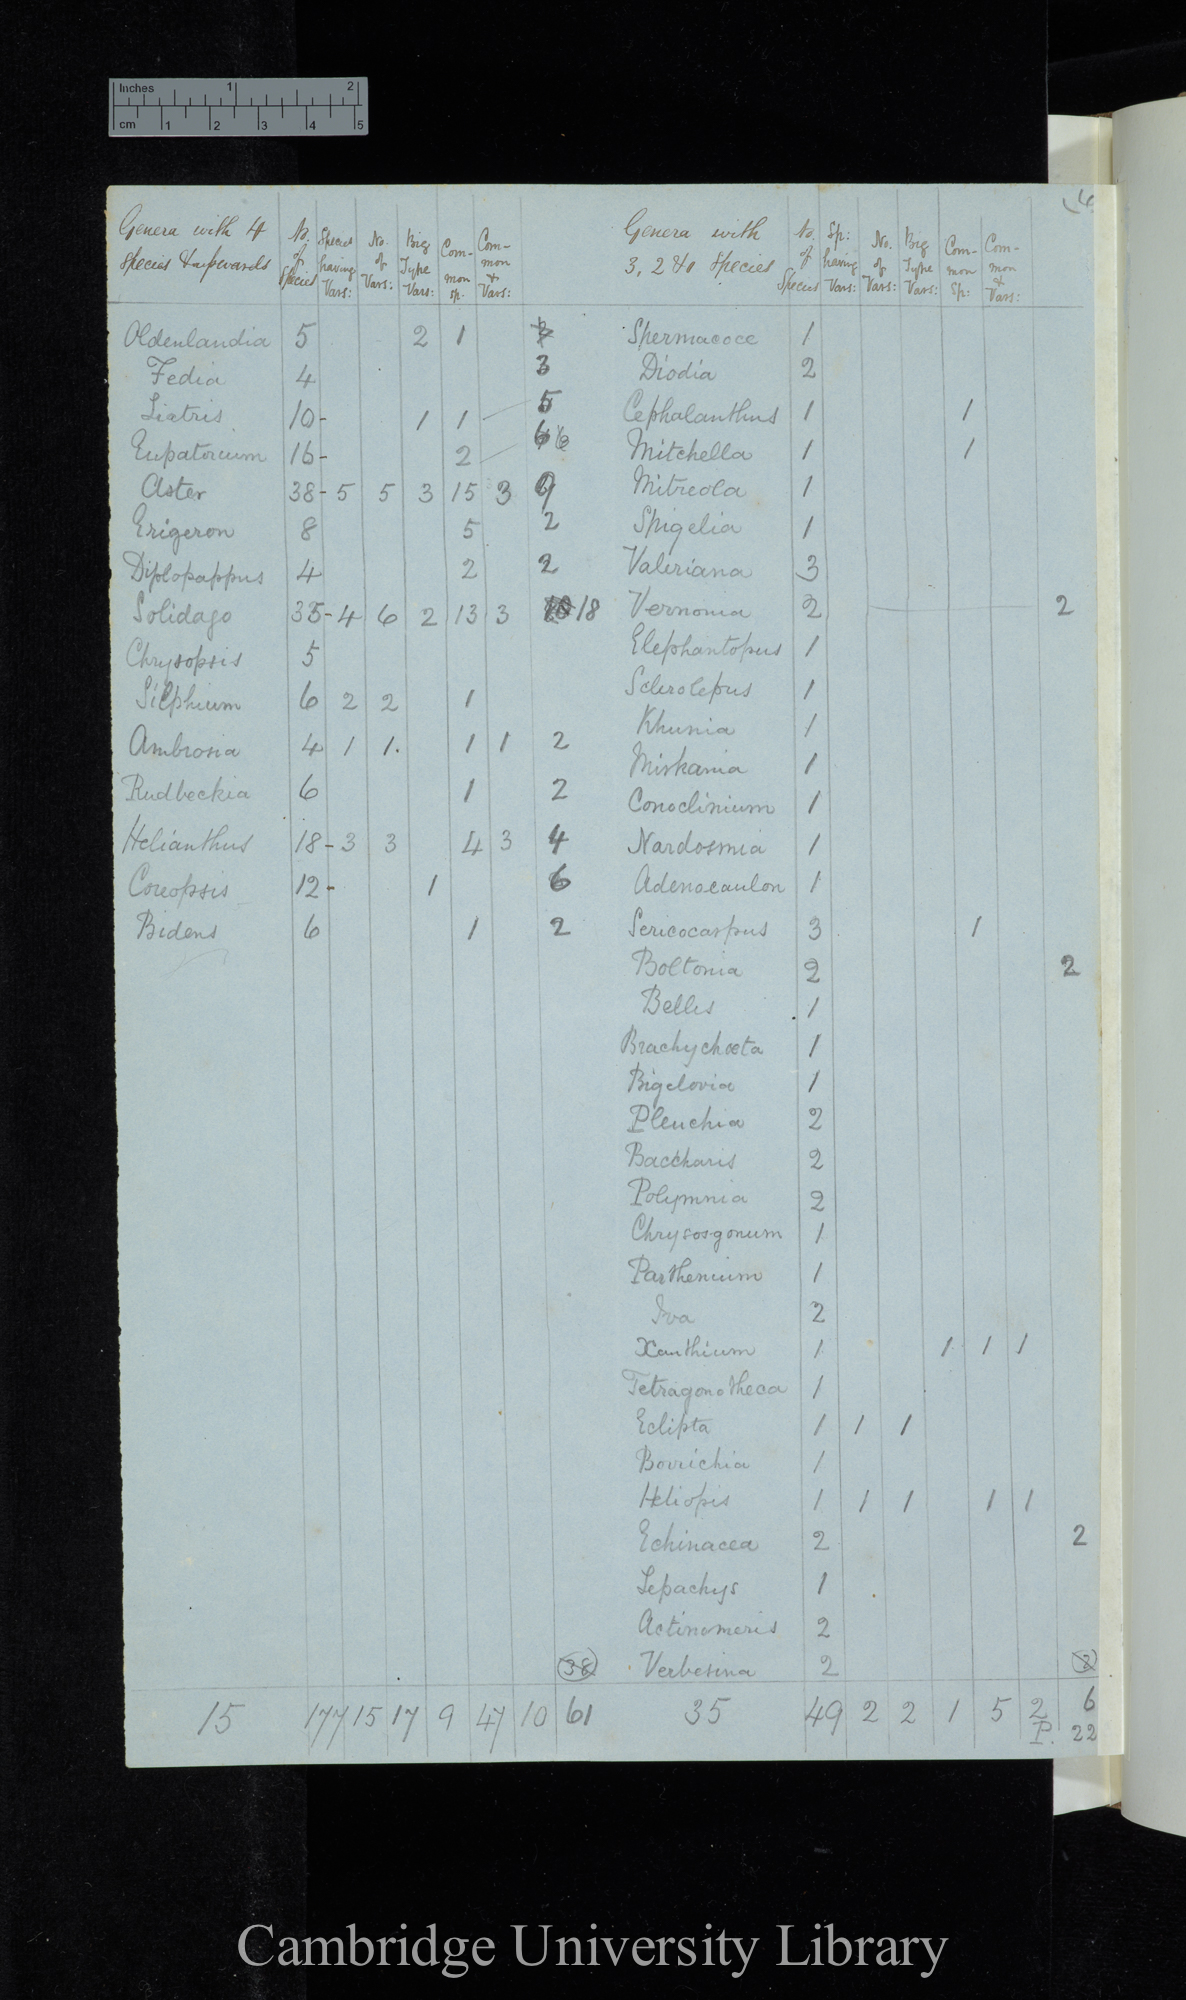 Inches 1 2
cm 1 2 3 4 5
(6
Genera with 4 species & upwards | No. of Species | Species having Vars: | No. of Vars: | Big Type Vars: | Common sp. | Common & Vars:
Oldenlandia 5 2 1
Fedia 4 3
Liatris 10- 1 1 5
Eupatorium 16- 2 6 6
Aster 38- 5 5 3 15 3 9
Erigeron 8 5 2
Diplopappus 4 2 2
Solidago 35- 4 6 2 13 3 18
Chrysopsis 5
Silphium 6 2 2 1
Ambrosia 4 1 1. 1 1 2
Rudbeckia 6 1 2
Helianthus 18- 3 3 4 3 4
Coreopsis 12- 1 6
Bidens 6 1 2
38
15 177 15 17 9 47 10 61
Genera with 3, 2 & 1 species | No. of Species | Sp: having Vars: | No. of Vars: | Big Type Vars: | Common Sp: | Common & Vars:
Spermacoce 1
Diodia 2
Cephalanthus 1 1
Mitchella 1 1
Mitreola 1
Spigelia 1
Valeriana 3
Vernonia 2 2
Elephantopus 1
Sclerolepus 1
Khunia 1
Miskania 1
Conoclinium 1
Nardosmia 1
Adenocaulon 1
Sericocarpus 3 1
Boltonia 2 2
Bellis 1
Brachychoeta 1
Bigelovia 1
Pleuchia 2
Baccharis 2
Polymnia 2
Chrysosgonum 1
Parthenium 1
Iva 2
Xanthium 1 1 1 1
Tetragonotheca 1
Eclipta 1 1 1
Borrichia 1
Heliopis 1 1 1 1 1
Echinacea 2 2
Lepachys 1
Actinomeris 2
Verbesina 2
35 49 2 2 1 5 2 6
P. 22
Cambridge University Library